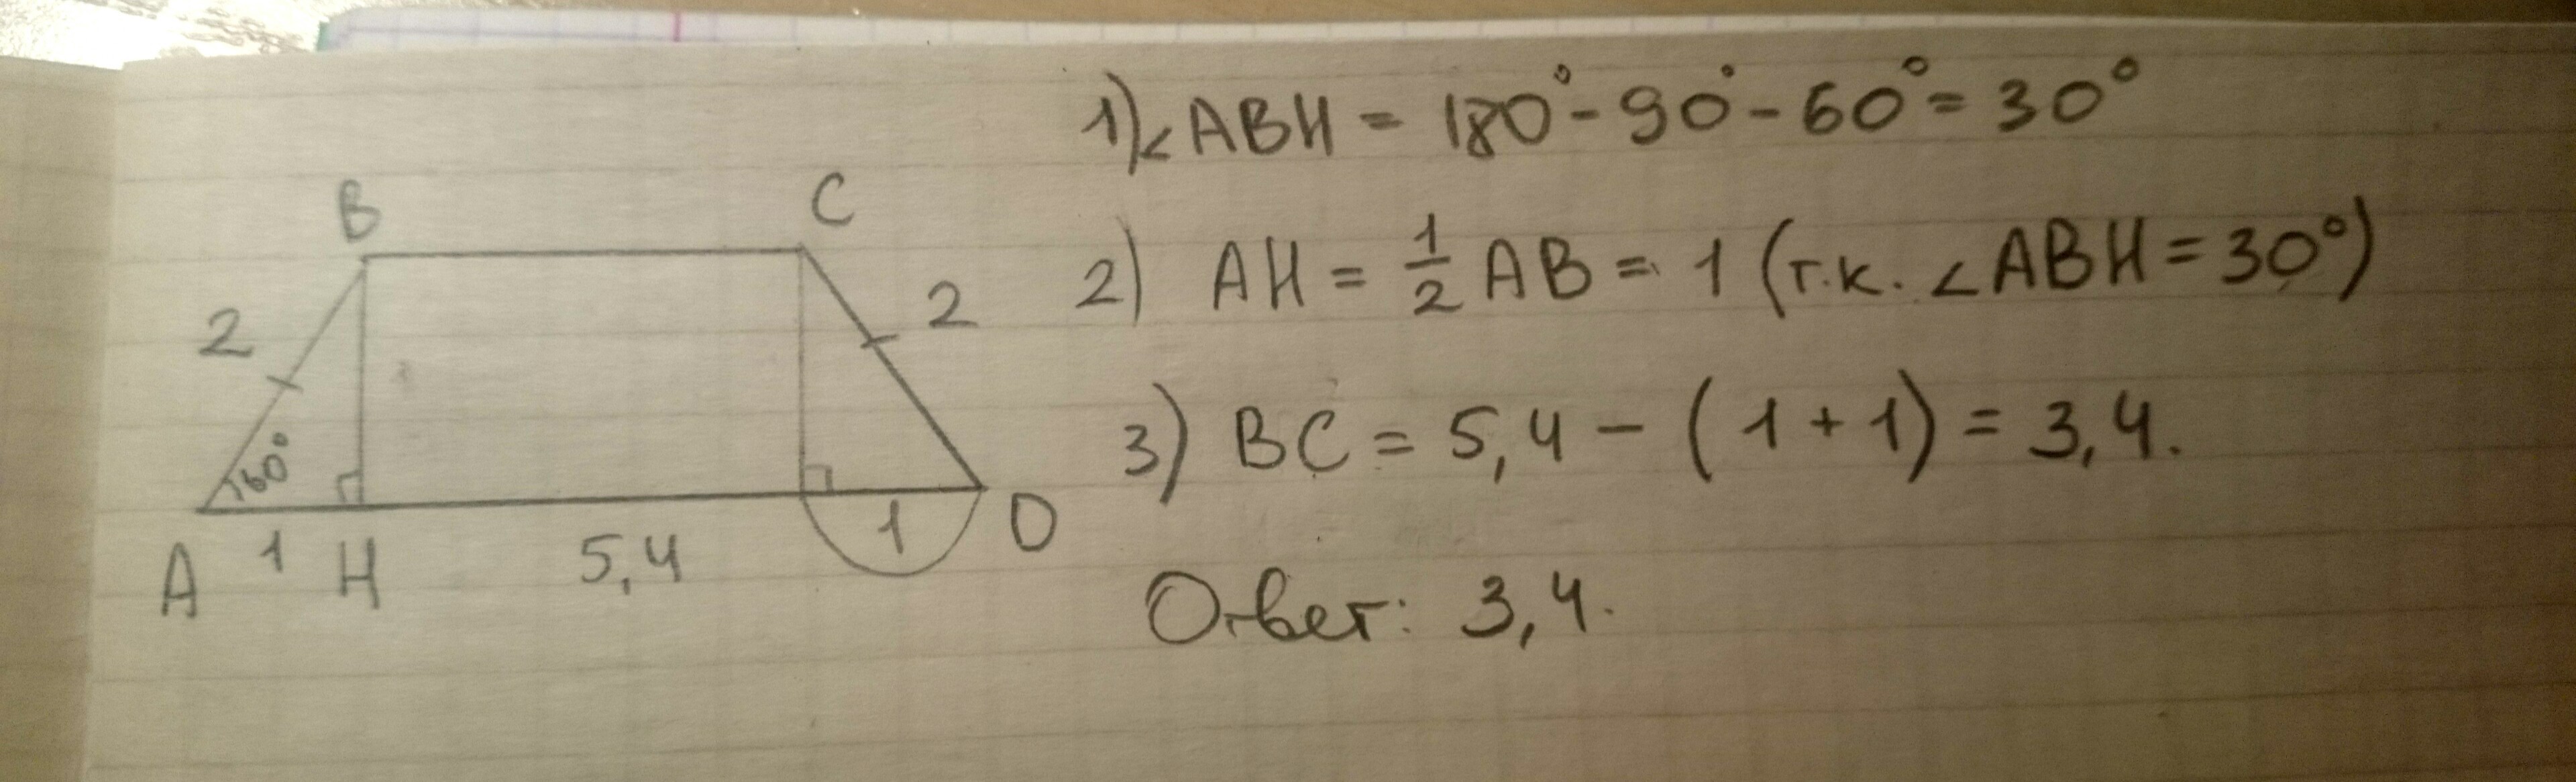 1) ∠ABH = 180° - 90° - 60° = 30°
B C
2 2
2) AH = 1/2 AB = 1 (т.к. ∠ABH = 30°)
60°
3) BC = 5,4 - (1 + 1) = 3,4.
A 1 H 5,4 1 D
Ответ: 3,4.